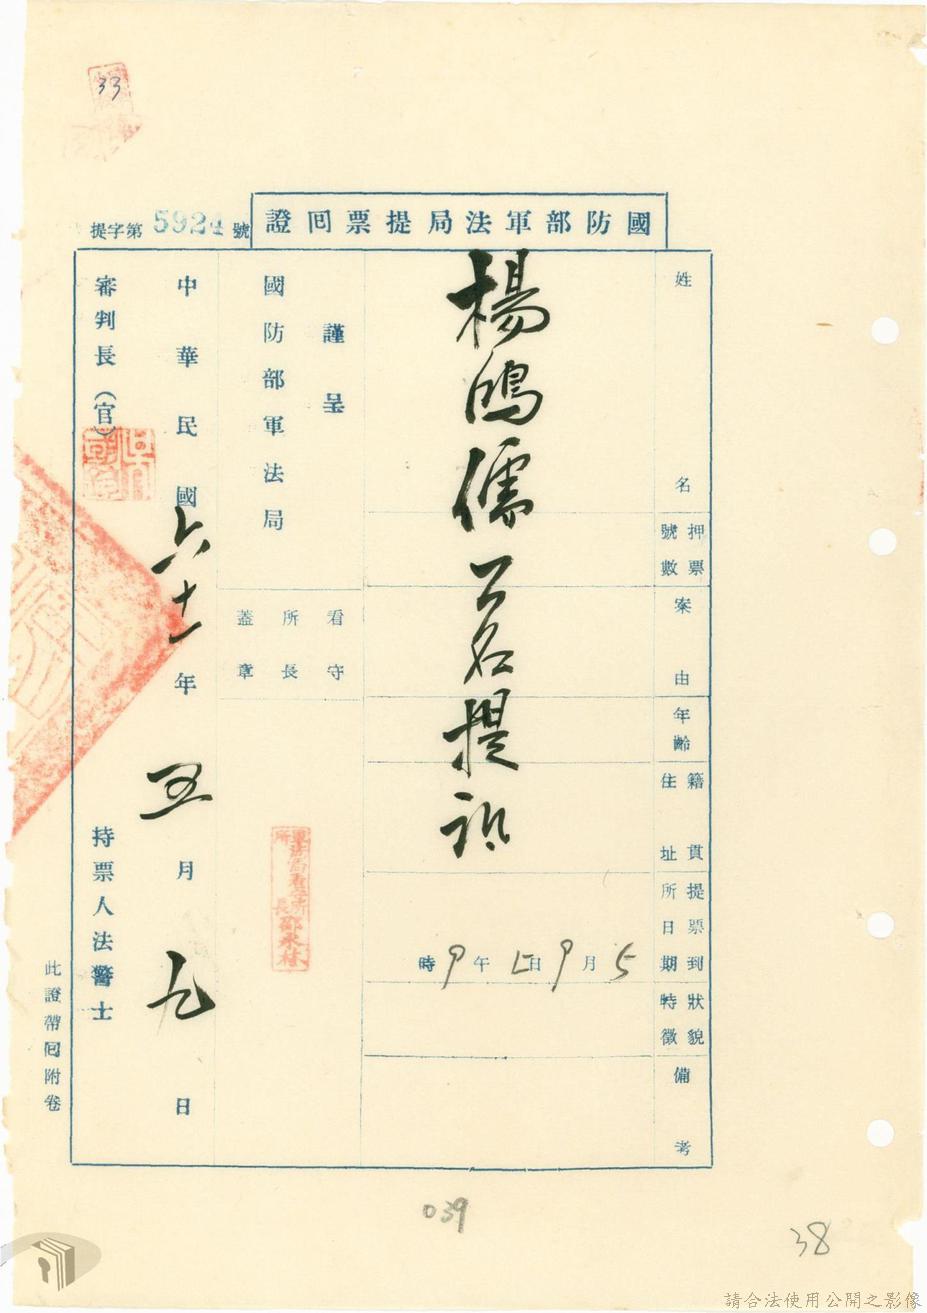 33
國防部軍法局提票回證
提字第5924號
姓名
押票號數
案由
年齡
籍貫住址
提票到所日期
狀貌特徵
備考
楊鴻儒乙名提訊
5月9日上午9時
謹呈
國防部軍法局
看守所長蓋章
中華民國六十一年五月九日
審判長(官)
持票人法警士
此證帶回附卷
039
38
請合法使用公開之影像